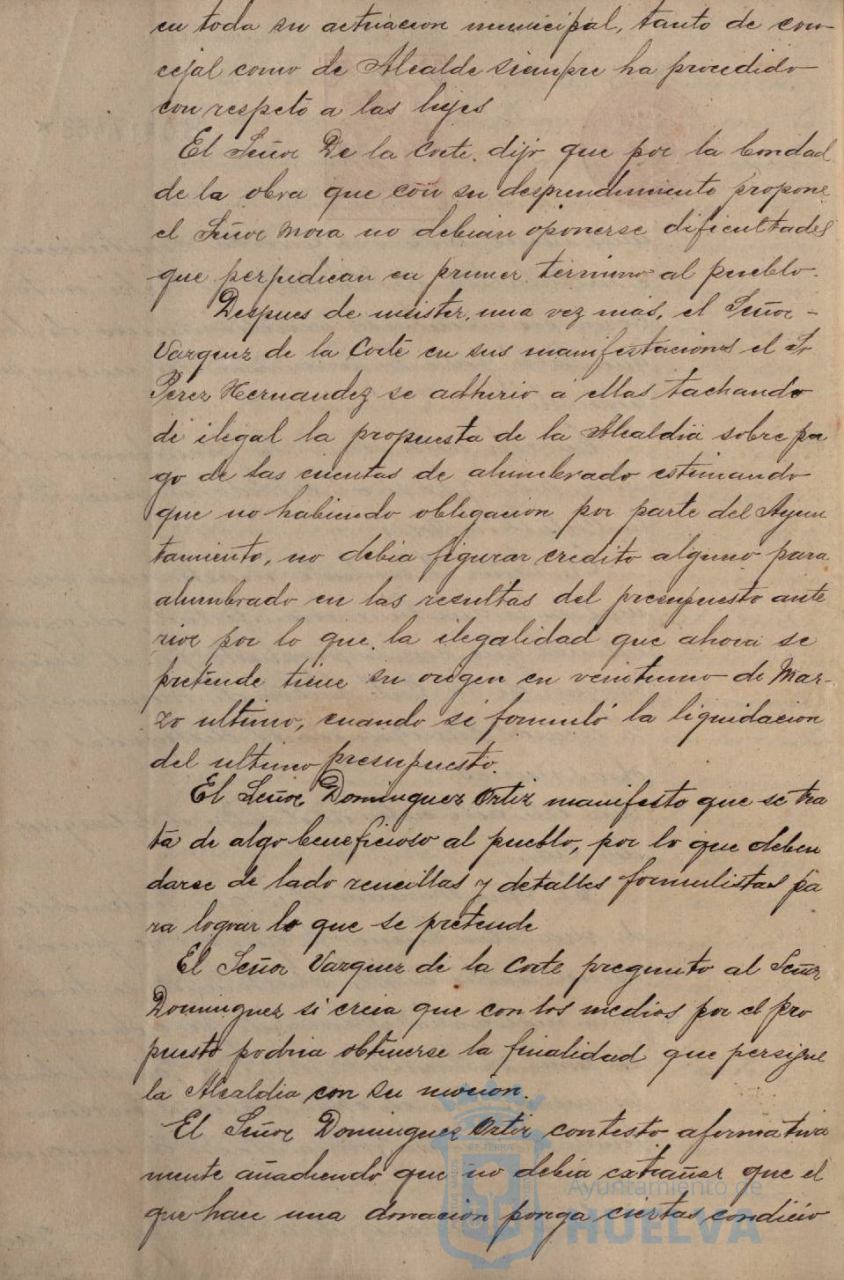 en toda su actuacion municipal, tanto de con-
cejal como de Alcalde siempre ha procedido
con respeto a las leyes
El Señor De la Corte, dijo que por la bondad
de la obra que con su desprendimiento propone
el Señor Mora no debian oponerse dificultades
que perjudican en primer término al pueblo.
Despues de insistir, una vez más, el Señor -
Vazquez de la Corte en sus manifestaciones el Sr
Perez Hernandez se adhirio a ellas tachando
de ilegal la propuesta de la Alcaldia sobre pa
go de las cuentas de alumbrado estimando
que no habiendo obligacion por parte del Ayun
tamiento, no debia figurar credito alguno para
alumbrado en las resultas del presupuesto ante
rior por lo que, la ilegalidad que ahora se
pretende tiene su origen en veintiuno de Mar-
zo ultimo, cuando se formuló la liquidacion
del ultimo presupuesto.
El Señor Dominguez Ortiz manifesto que se tra
ta de algo beneficioso al pueblo, por lo que deben
darse de lado rencillas y detalles formulistas pa
ra lograr lo que se pretende
El Señor Vazquez de la Corte pregunto al Señor
Dominguez si creia que con los medios por el pro
puesto podria obtenerse la finalidad que persigue
la Alcaldia con su mocion.
El Señor Dominguez Ortiz contesto afirmativa
mente añadiendo que no debia extrañar que el
que hace una donacion ponga ciertas condicio
Ayuntamiento de
HUELVA